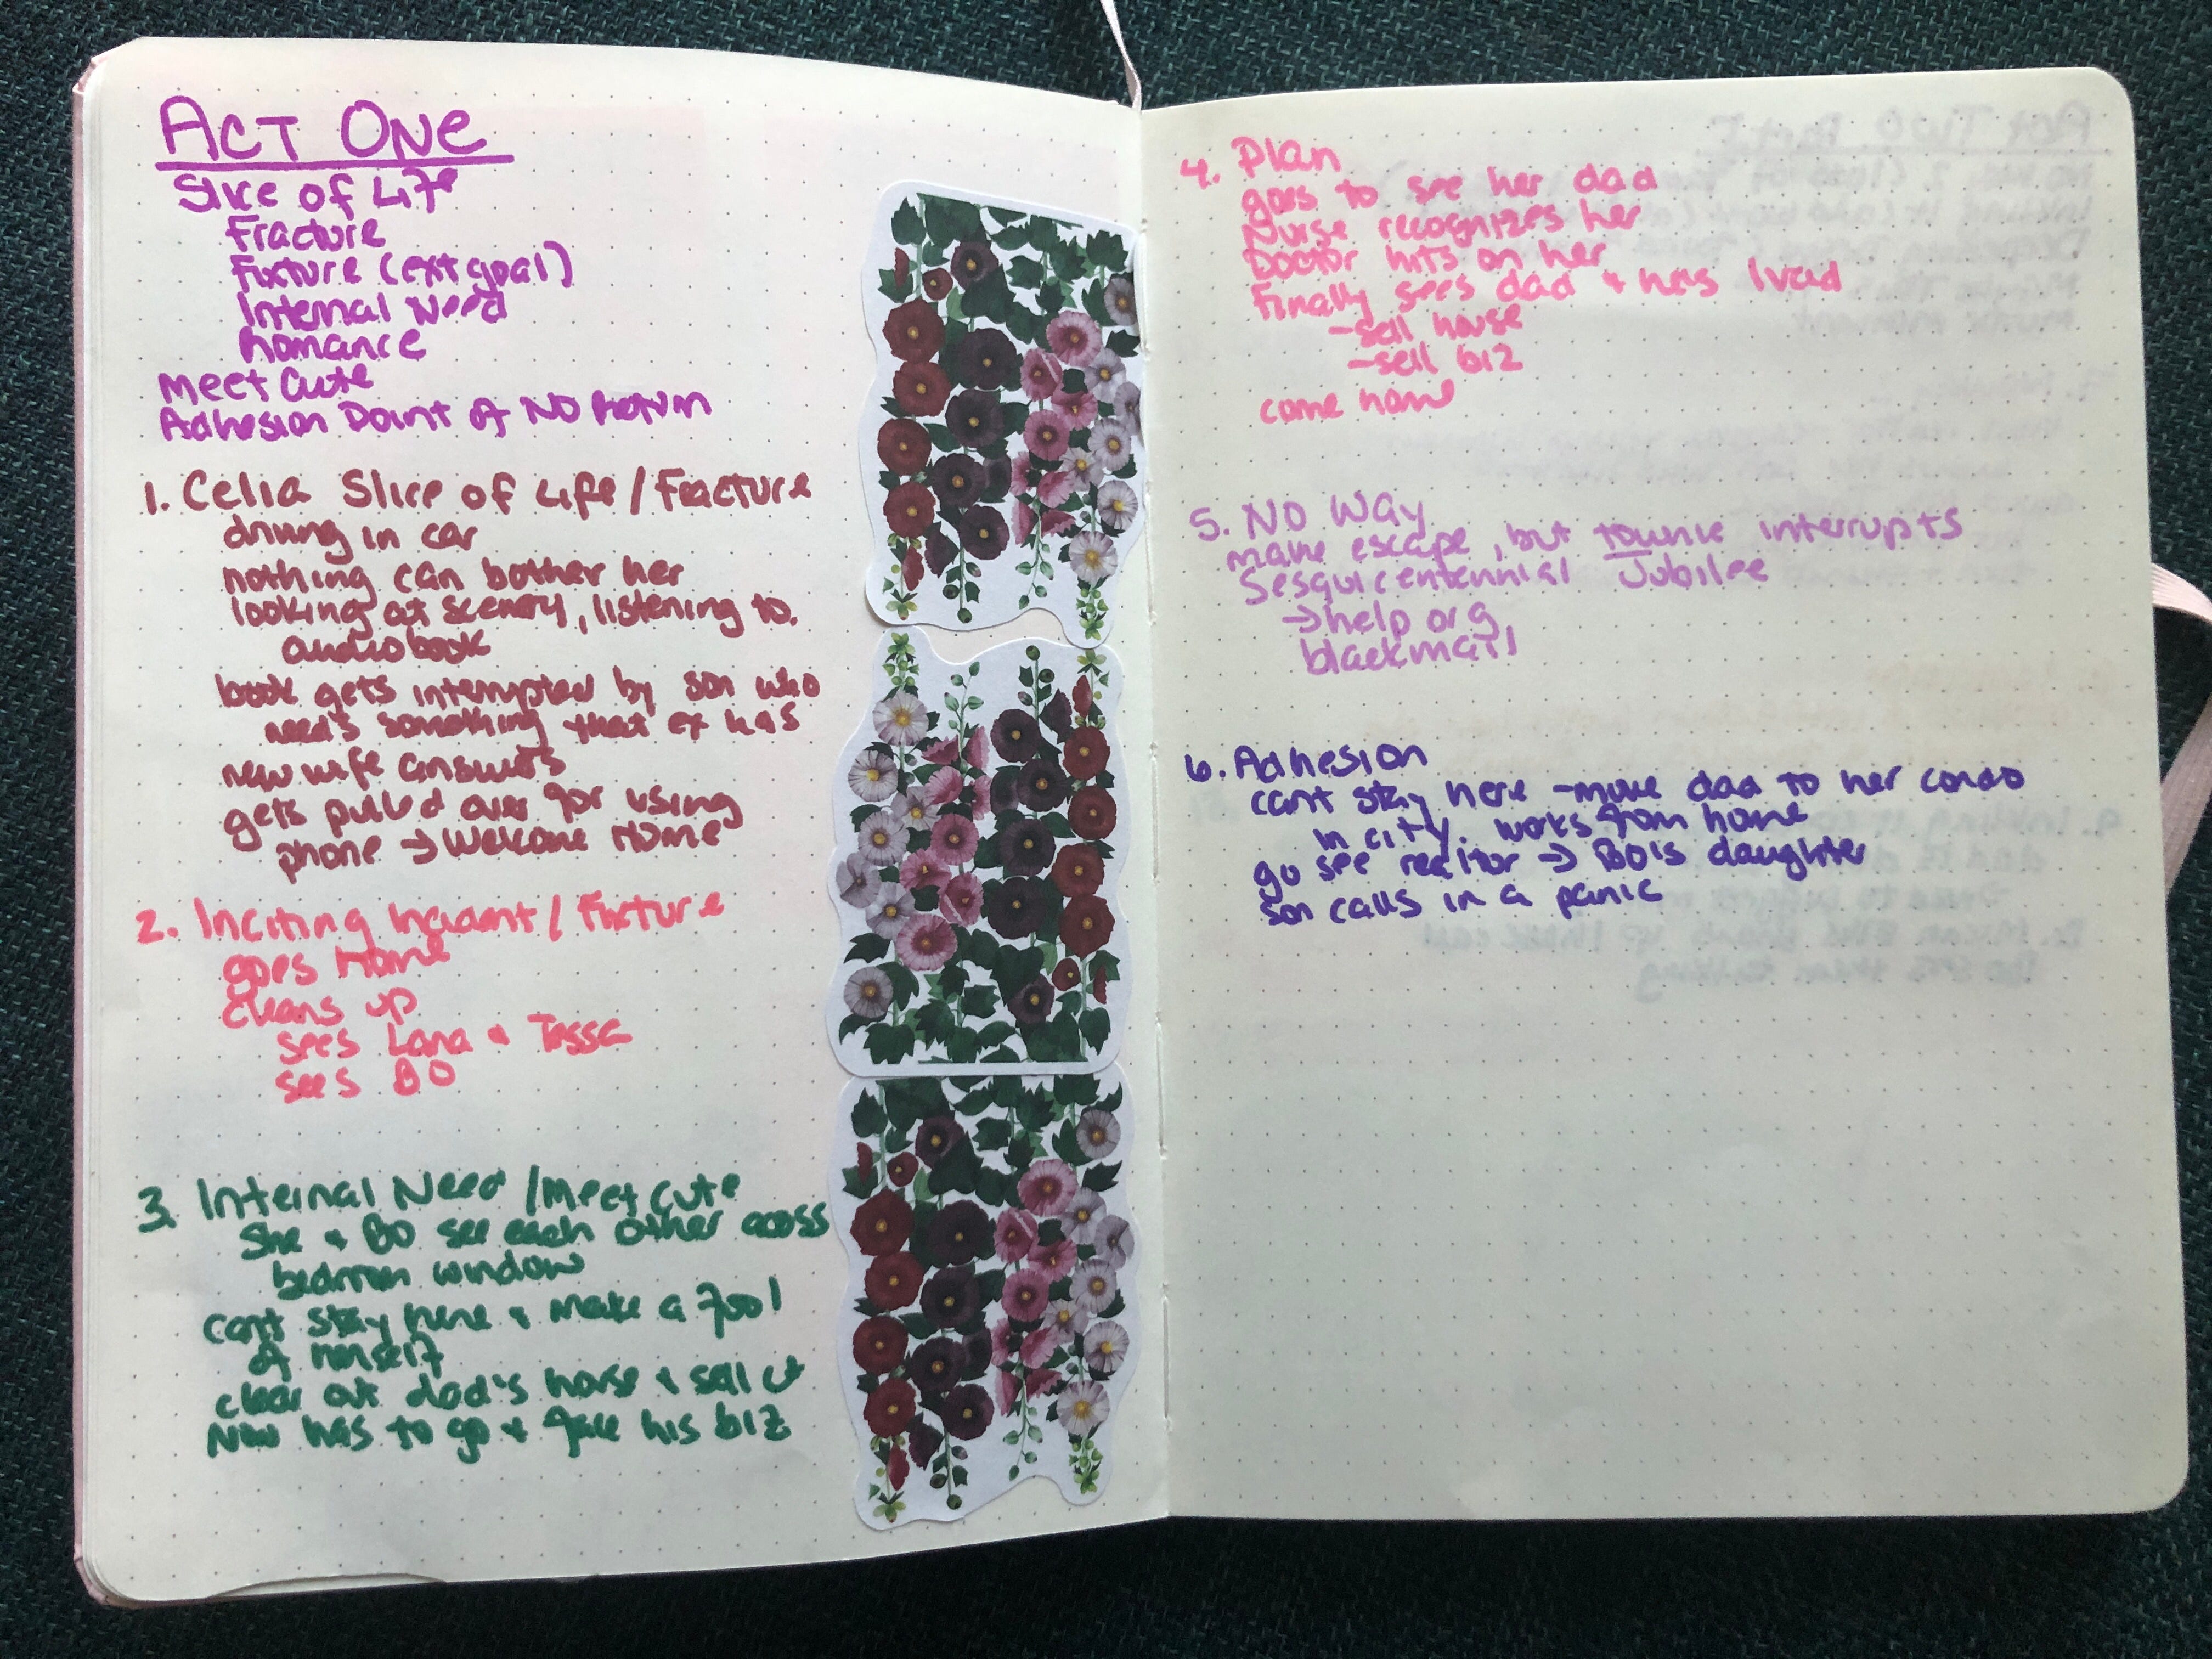 ACT ONE
Slice of Life
Fracture
Fixture (ext goal)
Internal Need
Romance
Meet Cute
Adhesion Point of No Return
1. Celia Slice of Life / Fracture
driving in car
nothing can bother her
looking at scenery, listening to
audiobook
book gets interrupted by son who
needs something that ex has
new wife answers
gets pulled over for using
phone → Welcome Home
2. Inciting Incident / Fixture
goes Home
cleans up
sees Lana + Tessa
sees BO
3. Internal Need / Meet Cute
She + BO see each other acoss
bedroom window
can't stay here + make a fool
of herself
clear out dad's house + sell it
Now has to go + face his biz
4. Plan
goes to see her dad
Nurse recognizes her
Doctor hits on her
Finally sees dad + hes
- sell house
- sell biz
come home
5. NO Way
make escape, but townie interrupts
Sesquicentennial Jubilee
→ help org
blackmail
6. Adhesion
cant stay here - move dad to her condo
in city. works from home
go see realtor → BO's daughter
son calls in a panic
ACT TWO Part I